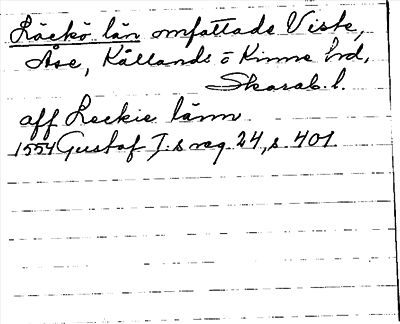 Läckö län omfattade Viste,
Åse, Kållands o Kinne hrd,
Skarab. l.
aff Leckie länn
1554 Gustaf I:s reg. 24, s. 401